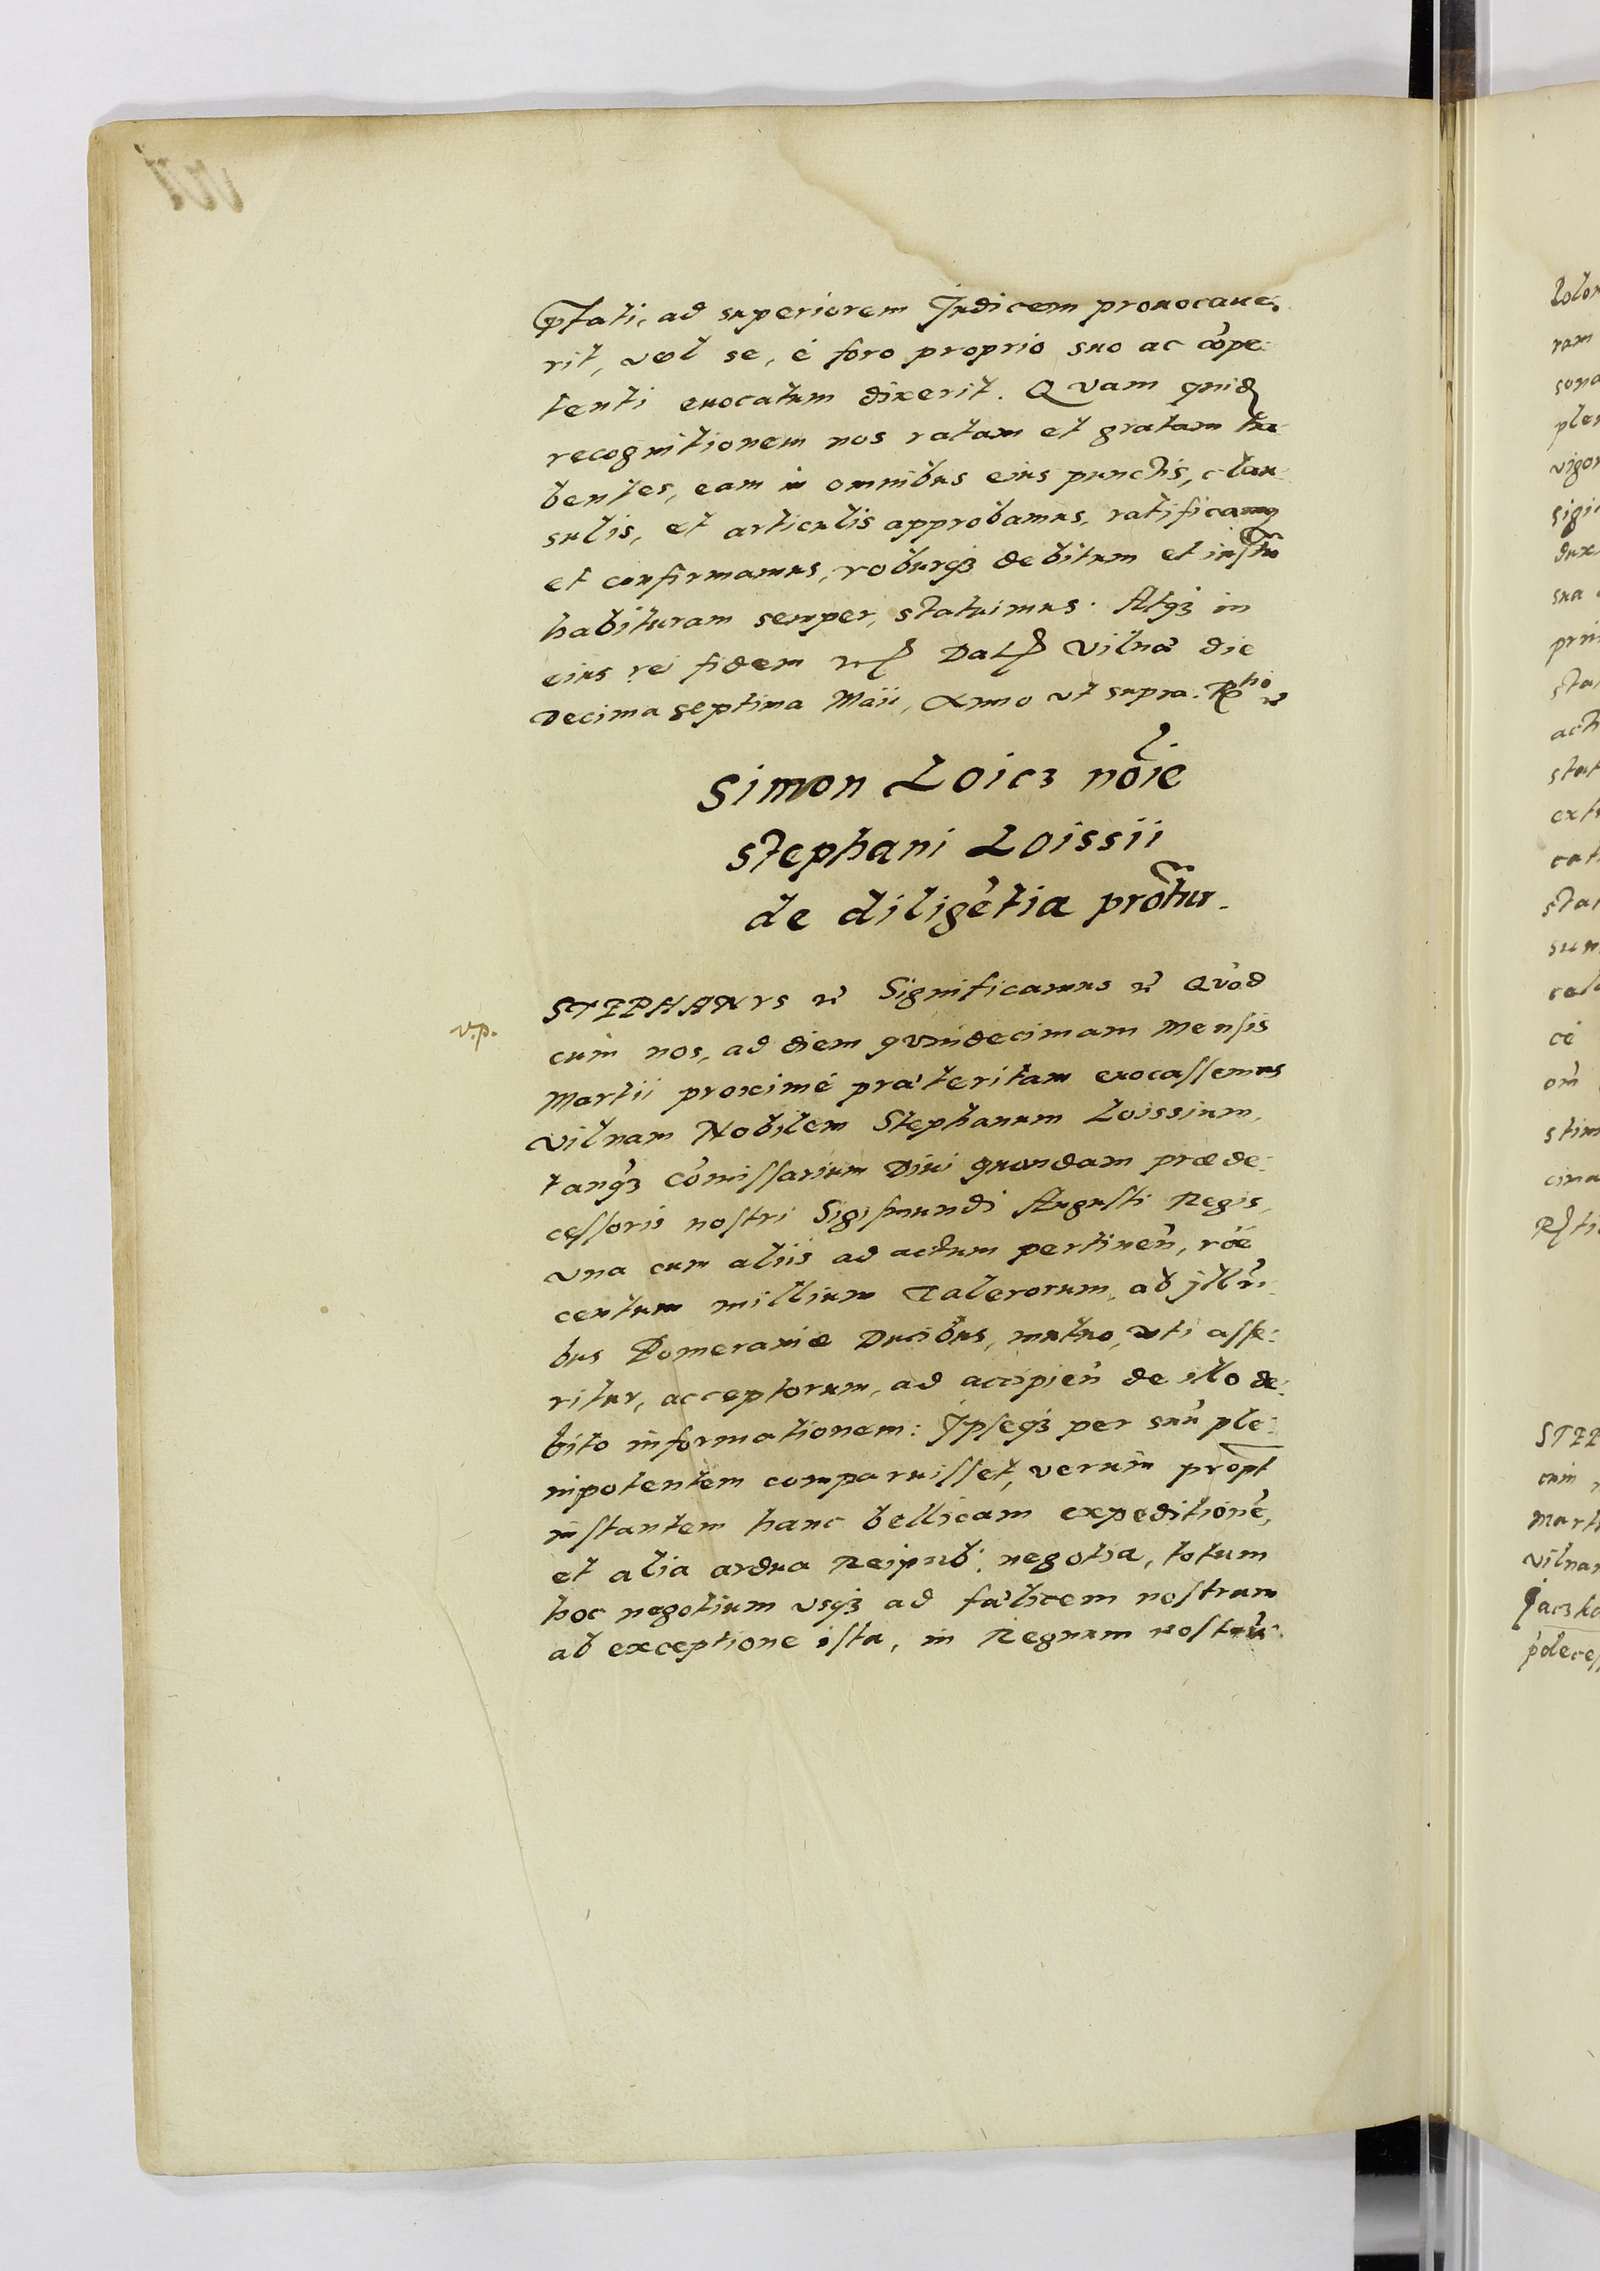 ptati, ad superiorem Judicem prouocaue:
rit, vel se, é foro proprio suo ac cõpe:
tenti euocatum dixerit. Quam quid
recognitionem nos ratam et gratam ha:
bentes, eam in omnibus eius punctis, clau:
sulis, et articulis approbamus, ratificamus
et confirmamus, roburq3 debitum et iustu
habituram semper, statuimus. Atq3 in
eius rei fidem Dat Vilnæ die
Decima septima Maii, Anno vt supra. Rtio
Simon Loicz nõie
Stephani Loissii
de diligẽtia prõtur.
v.p.
STEPHANVS Significamus Quòd
cum nos, ad diem quindecimam Mensis
Martii proximé præteritam euocassemus
Vilnam Nobilem Stephanum Loissium,
tanq3 Cõmissarium Diui quondam præde:
cessoris nostri Sigismundi Augusti Regis,
vna cum aliis ad actum pertineñ, rõe
centum millium Talerorum, ab jllri:
bus Pomeraniæ Ducibus, mutuo, vti asse:
ritur, acceptorum, ad accipieñ de illo de:
bito informationem: Ipseq3 per suũ ple:
nipotentem comparuisset, verum propt
instantem hanc bellicam expeditionẽ,
et alia ardua Reipub: negotia, totum
hoc negotium vsq3 ad fælicem nostram
ab exceptione ista, in Regnum nostrũ